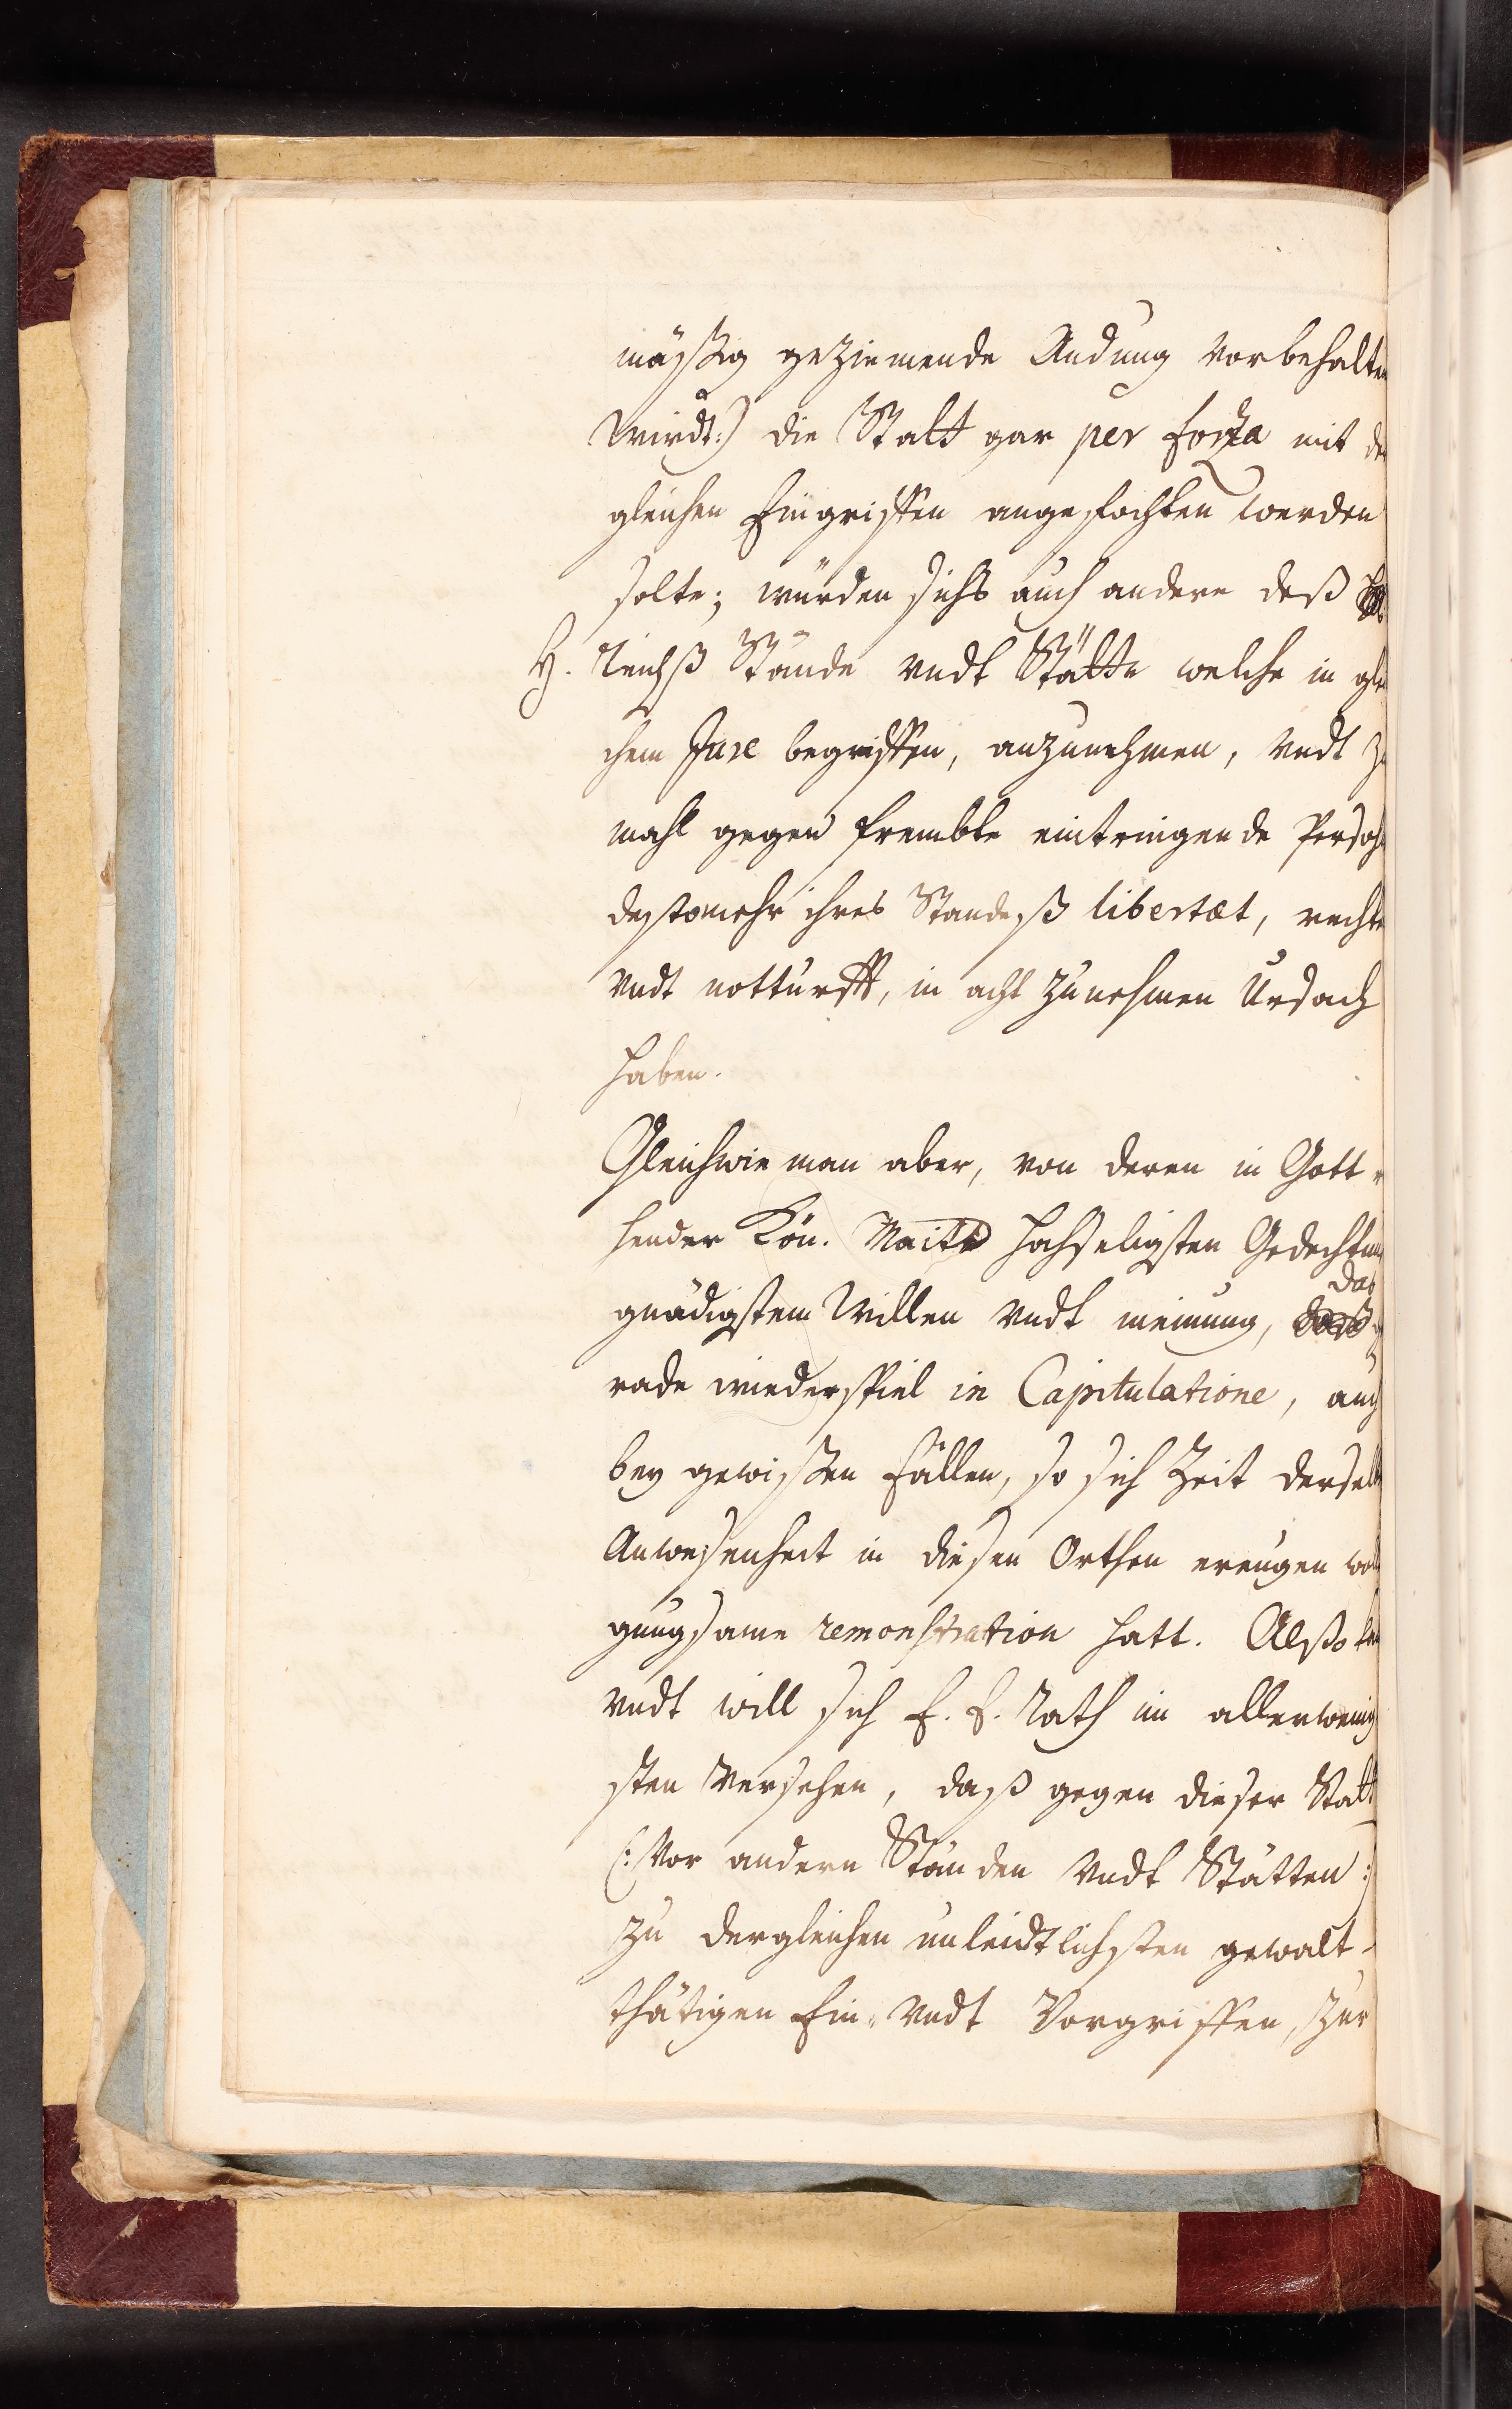 mäßig geziemende Andung vorbehalten
wirdt:) die Statt gar per forza mit der
gleichen Eingriffen angefochten werden
solte; würden sichs auch andere deß
H. Reichß Stände vndt Stätte welche in glei
chem Jure begriffen, anzunehmen, vndt zu
mahl gegen frembte eintringende Persohn
destomehr ihres Standeß libertæt, rechte
vndt notturfft, in acht zunehmen Ursach
haben.
Gleichwie man aber, von deren in Gott r
hender Kön. Maitt. Hochseligsten Gedechtnuß
gnädigstem Willen vndt meinung, das ge
rade wiederspiel in Capitulatione, auch
bey gewißen Fällen, so sich Zeit derselben
Anwesenheit in diesen Orthen ereugen wollen
gnugsame remonstration hatt. Alßo kan
vndt will sich E. E. Rath im allerwenig
sten versehen, daß gegen dieser Statt
(: vor andern Ständen vndt Stätten :)
zu dergleichen unleidtlichsten gewalt-
thätigen Ein- vndt Vorgriffen, zur